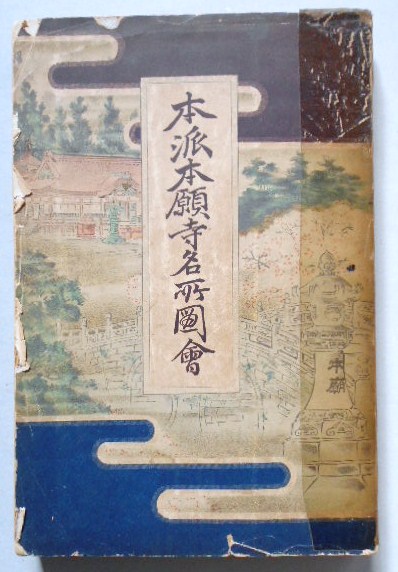 本派本願寺名所圖會
本廟